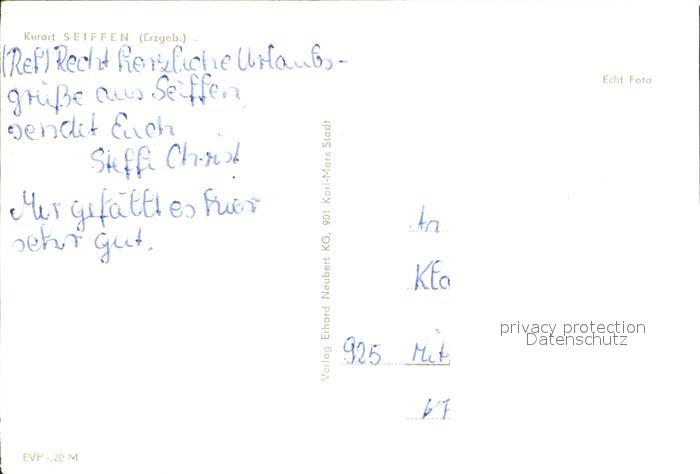 Kurort SEIFFEN (Erzgeb.)
Recht herzliche Urlaubs-
grüße aus Seiffen
sendet Euch
Steffi Christ
Mir gefällt es hier
sehr gut.
Echt Foto
Verlag Erhard Neubert KG, 901 Karl-Marx Stadt
An
Kla
925 Mit
privacy protection
Datenschutz
EVP -,20 M